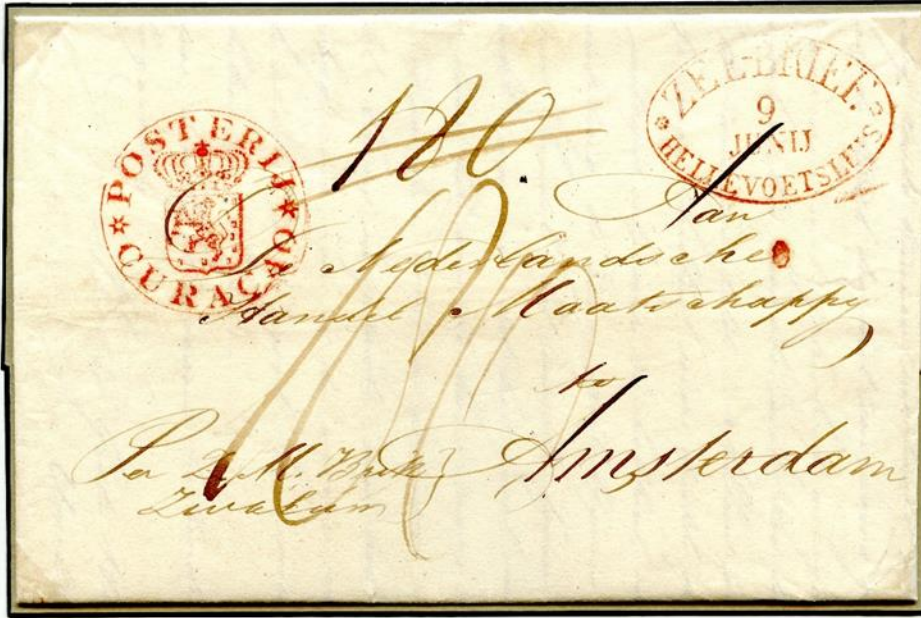 POSTERIJ
CURAÇAO
ZEE-BRIEF.
9
JUNIJ
HELLEVOETSLUIS
180.
Aan
Nederlandsche
Handel Maatschappy
te
Amsterdam
Per Z. M. Brik